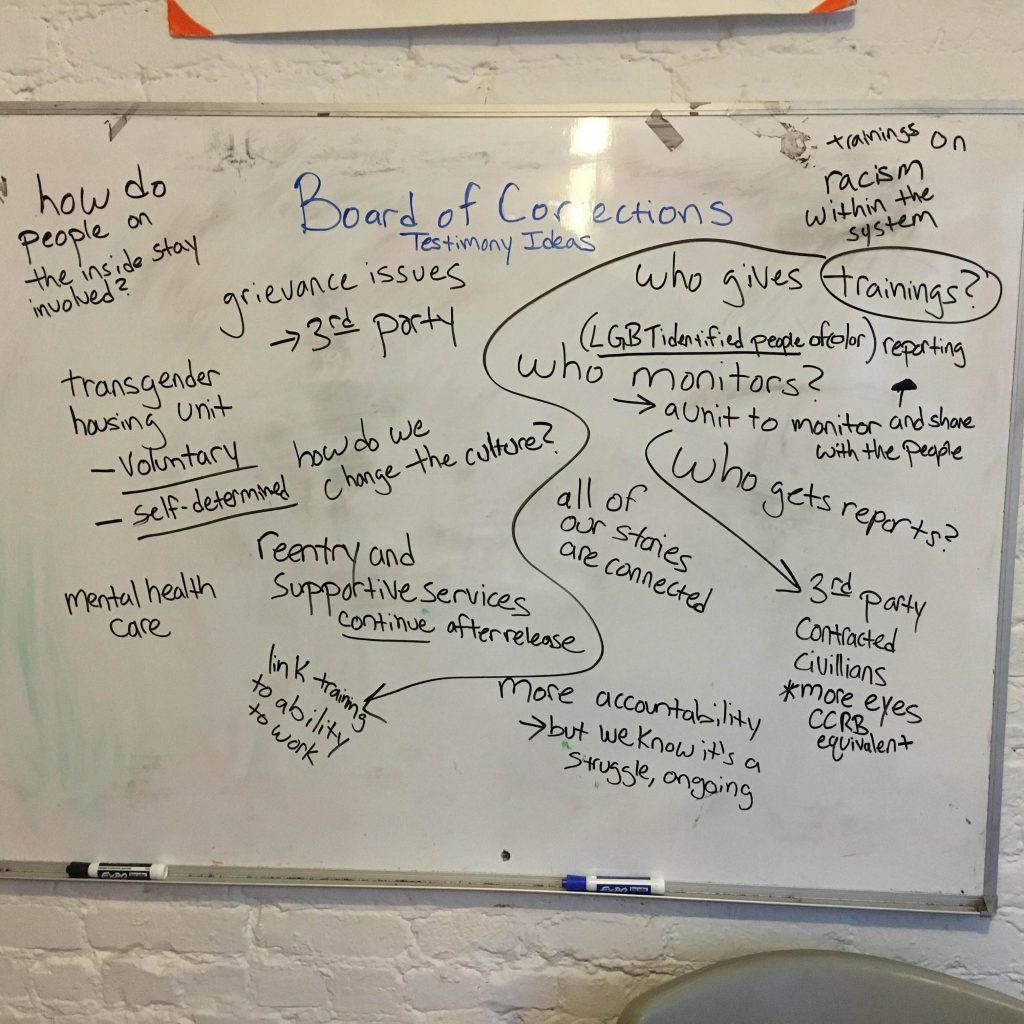 Board of Corrections
Testimony Ideas
how do
people on
the inside stay
involved?
grievance issues
→ 3rd party
transgender
housing unit
- Voluntary
- self-determined
how do we
change the culture?
reentry and
supportive services
continue after release
mental health
care
link training
to ability
to work
trainings on
racism
within the
system
who gives trainings?
(LGBT identified people of color)
who monitors?
→ a unit to monitor
reporting
and share
with the people
who gets reports?
all of
our stories
are connected
3rd party
Contracted
Civillians
*more eyes
CCRB
equivalent
more accountability
→ but we know it's a
struggle, ongoing
EXPO
EXPO